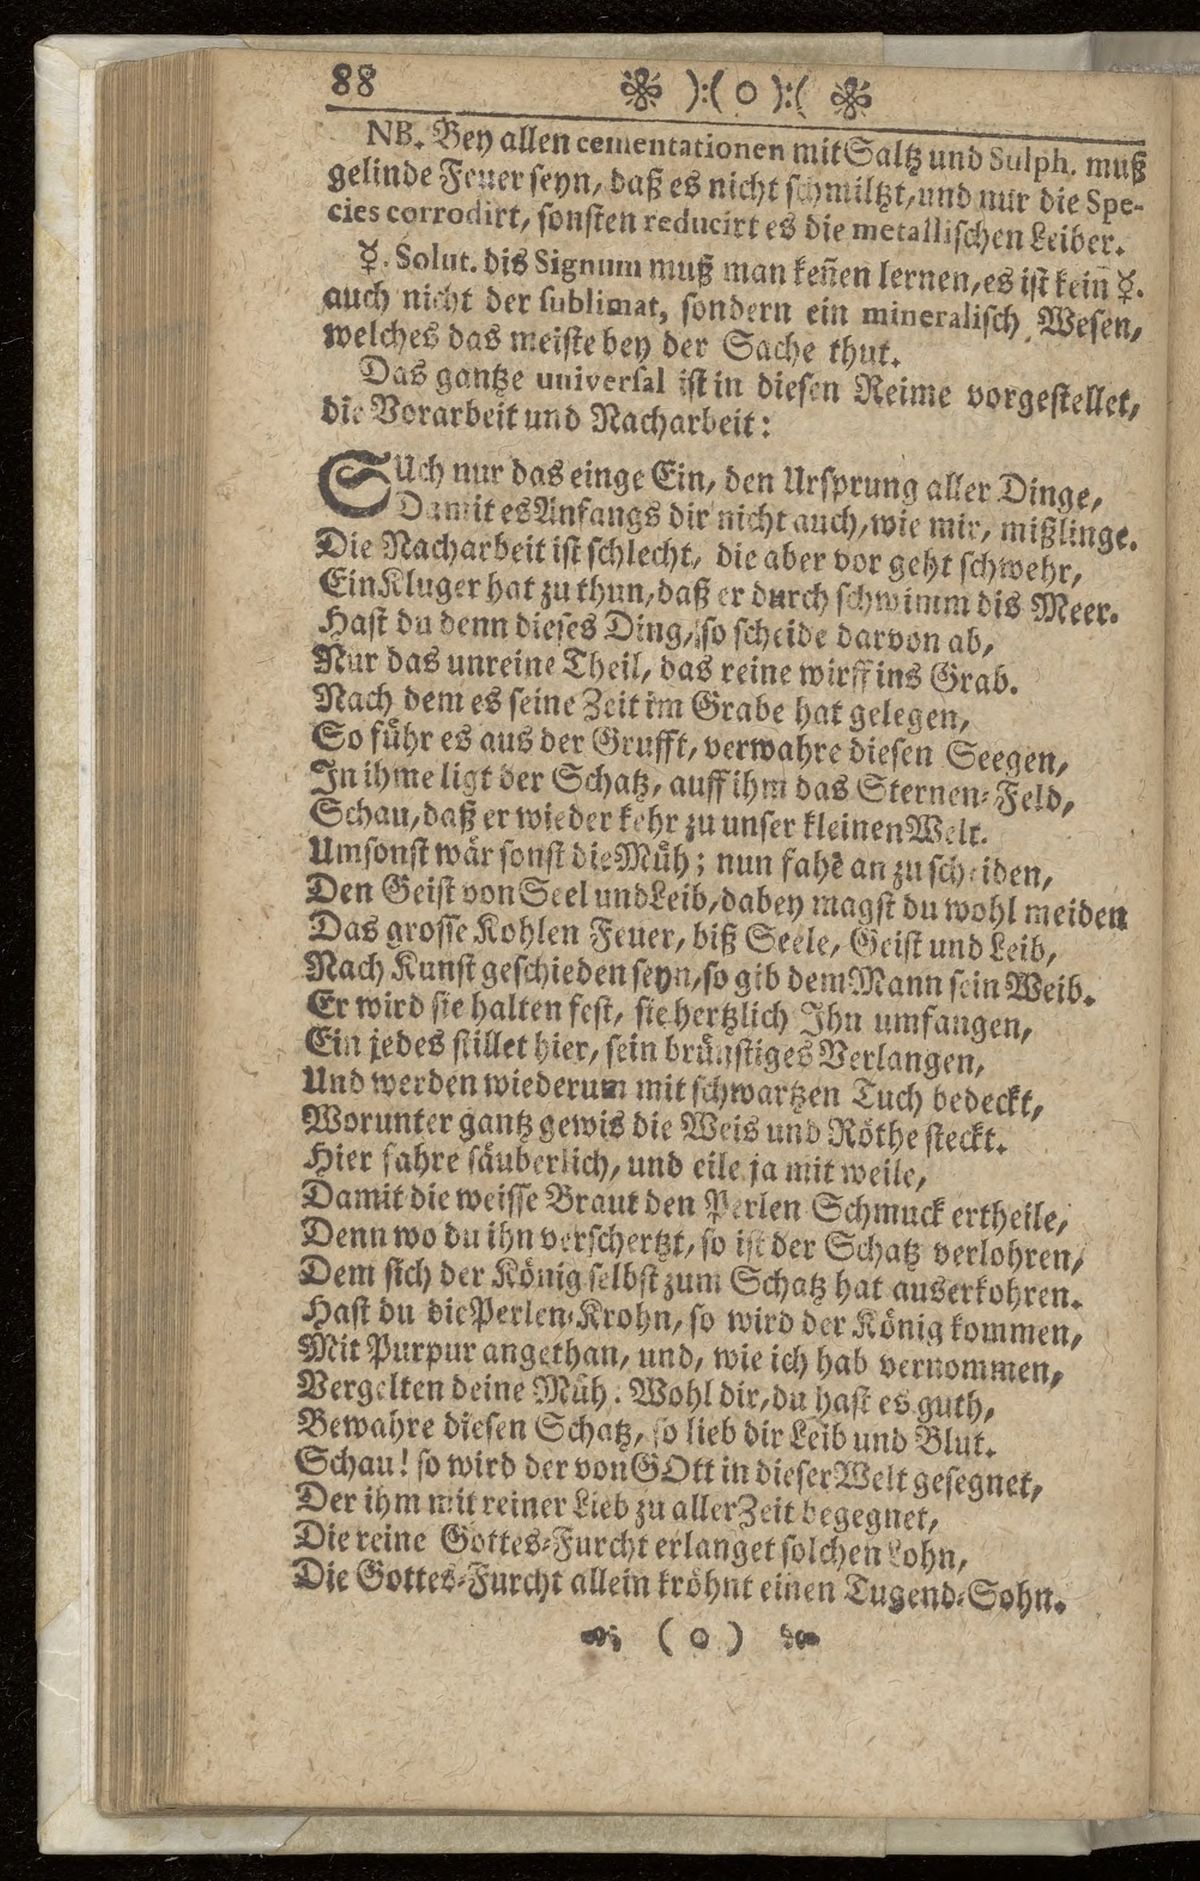 88 ):( O ):(
NB. Bey allen cementationen mit Saltz und Sulph. muß
gelinde Feuer seyn, daß es nicht schmiltzt, und nur die Spe-
cies corrodirt, sonsten reducirt es die metallischen Leiber.
☿. Solut. dis Signum muß man keñen lernen, es ist kein ☿.
auch nicht der sublimat, sondern ein mineralisch Wesen,
welches das meiste bey der Sache thut.
Das gantze universal ist in diesen Reime vorgestellet,
die Vorarbeit und Nacharbeit:
SUch nur das einge Ein, den Ursprung aller Dinge,
Damit es Anfangs dir nicht auch, wie mir, mißlinge.
Die Nacharbeit ist schlecht, die aber vor geht schwehr,
Ein Kluger hat zu thun, daß er durch schwimm dis Meer.
Hast du denn dieses Ding, so scheide darvon ab,
Nur das unreine Theil, das reine wirff ins Grab.
Nach dem es seine Zeit im Grabe hat gelegen,
So führ es aus der Grufft, verwahre diesen Seegen,
In ihme ligt der Schatz, auff ihm das Sternen-Feld,
Schau, daß er wieder kehr zu unser kleinen Welt.
Umsonst wär sonst die Müh; nun fahe an zu scheiden,
Den Geist von Seel und Leib, dabey magst du wohl meiden
Das grosse Kohlen Feuer, biß Seele, Geist und Leib,
Nach Kunst geschieden seyn, so gib dem Mann sein Weib.
Er wird sie halten fest, sie hertzlich Ihn umfangen,
Ein jedes stillet hier, sein brünstiges Verlangen,
Und werden wiederum mit schwartzen Tuch bedeckt,
Worunter gantz gewis die Weis und Röthe steckt.
Hier fahre säuberlich, und eile ja mit weile,
Damit die weisse Braut den Perlen Schmuck ertheile,
Denn wo du ihn verschertzt, so ist der Schatz verlohren,
Dem sich der König selbst zum Schatz hat auserkohren.
Hast du die Perlen-Krohn, so wird der König kommen,
Mit Purpur angethan, und, wie ich hab vernommen,
Vergelten deine Müh. Wohl dir, du hast es guth,
Bewahre diesen Schatz, so lieb dir Leib und Blut.
Schau! so wird der von GOtt in dieser Welt gesegnet,
Der ihm mit reiner Lieb zu aller Zeit begegnet,
Die reine Gottes-Furcht erlanget solchen Lohn,
Die Gottes-Furcht allein kröhnt einen Tugend-Sohn.
( o )